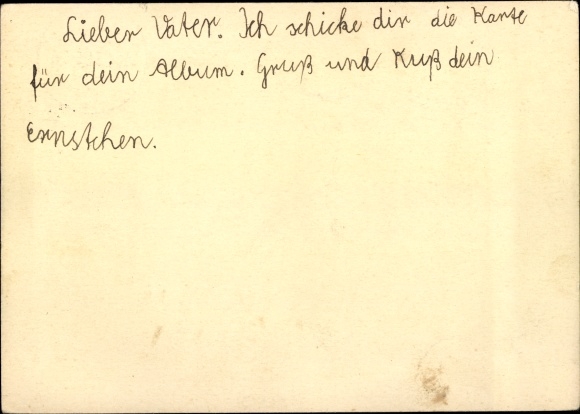 Lieber Vater. Ich schicke dir die Karte
für dein Album. Gruß und Kuß dein
Ernstchen.